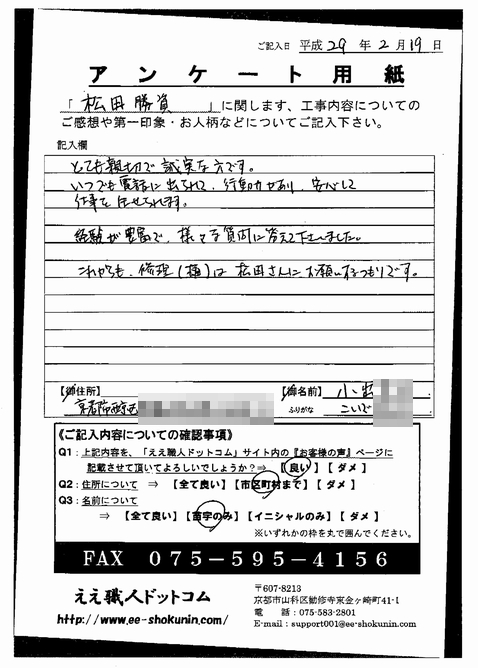 ご記入日 平成 29 年 2 月 19 日
アンケート用紙
「 松田 勝資 」に関します、工事内容についての
ご感想や第一印象・お人柄などについてご記入下さい。
記入欄
とても親切で誠実な方です。
いつでも電話に出られて、行動力があり、安心して
仕事を任せられます。
経験が豊富で、様々な質問に答えて下さいました。
これからも、修理（樋）は松田さんにお願いするつもりです。
【御住所】 【御名前】 小出
京都市西京区 ふりがな こいで
《ご記入内容についての確認事項》
Q1：上記内容を、「ええ職人ドットコム」サイト内の『お客様の声』ページに
記載させて頂いてよろしいでしょうか？⇒ 【良い】【ダメ】
Q2：住所について ⇒ 【全て良い】【市区町村まで】【ダメ】
Q3：名前について
⇒ 【全て良い】【苗字のみ】【イニシャルのみ】【ダメ】
※いずれかの枠を丸で囲んでください。
FAX 075-595-4156
ええ職人ドットコム
http://www.ee-shokunin.com/
〒607-8213
京都市山科区勧修寺東金ヶ崎町41-1
電 話：075-583-2801
E-mail：support001@ee-shokunin.com